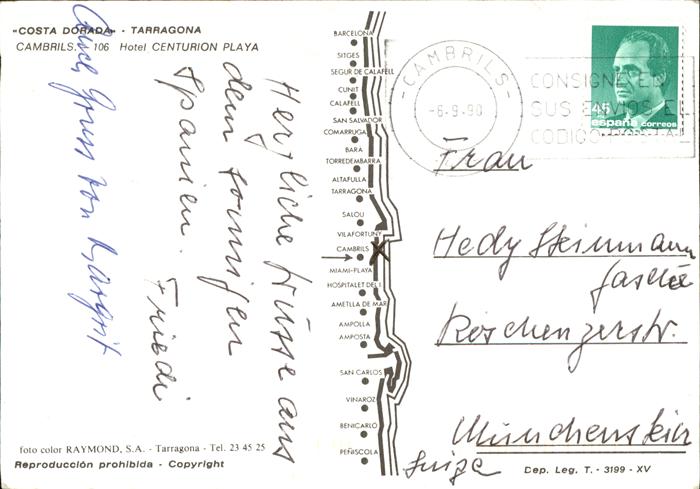 «COSTA DORADA» - TARRAGONA
CAMBRILS. - 106 Hotel CENTURION PLAYA
Herzliche Grüsse aus
dem sonnigen
Spanien.
Friedi
Auch Gruss von Margrit
foto color RAYMOND, S.A. - Tarragona - Tel. 23 45 25
Reproducción prohibida - Copyright
BARCELONA
SITGES
SEGUR DE CALAFELL
CUNIT
CALAFELL
SAN SALVADOR
COMARRUGA
BARA
TORREDEMBARRA
ALTAFULLA
TARRAGONA
SALOU
VILAFORTUNY
CAMBRILS
MIAMI-PLAYA
HOSPITALET DEL I.
AMETLLA DE MAR
AMPOLLA
AMPOSTA
SAN CARLOS
VINAROZ
BENICARLÓ
PEÑISCOLA
-CAMBRILS-
-6-9.90
CONSIGNE EL
SUS ENVIOS EL
CODIGO POSTAL
45
españa correos
Frau
Hedy Steinmann
Münchenstein
Suiza
Dep. Leg. T. - 3199 - XV